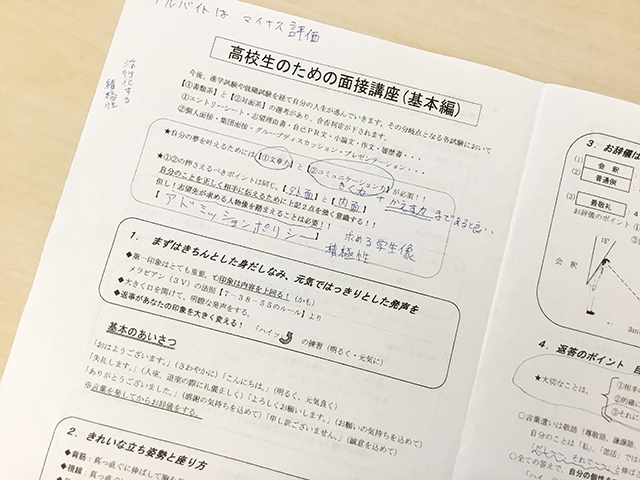 アルバイトは マイナス評価
活性化する
積極性
高校生のための面接講座(基本編)
今後、進学試験や就職試験を経て自分の人生が進んでいきます。その分岐点となる各試験において
【①書類系】と【②対面系】の選考があり、合否判定が下されます。
①エントリーシート・志望理由書・自己PR文・小論文・作文・履歴書・・・
②個人面接・集団面接・グループディスカッション・プレゼンテーション・・・
★自分の夢を叶えるためには【①文章力】と【②コミュニケーション力】が必須!!
きく力 + かえす力まであると良い
★①②の押さえるべきポイントは同じ、【外面】と【内面】
自分のことを正しく相手に伝えるために上記2点を強く意識する!!
但し!志望先が求める人物像を踏まえることは必須!!
【アドミッションポリシー】 求める学生像
積極性
1. まずはきちんとした身だしなみ、元気ではっきりとした発声を
◆第一印象はとても重要、で印象は内容を上回る!(かも)
メラビアン(3V)の法則【7-38-55のルール】より
◆大きく口を開けて、明瞭な発声をする。
◆返事があなたの印象を大きく変える! 「ハイッ」の練習(明るく・元気に)
基本のあいさつ
「おはようございます。」(さわやかに)「こんにちは。」(明るく、元気良く)
「失礼します。」(入室、退室の際に礼儀正しく)「よろしくお願いします。」(お願いの気持ちを込めて)
「ありがとうございました。」(感謝の気持ちを込めて)「申し訳ございません。」(誠意を込めて)
※言葉を発してからお辞儀をする。
2. きれいな立ち姿勢と座り方
◆背筋:真っ直ぐに伸ばして胸を
◆視線:真っ直ぐ
3. お辞儀は
(1) 会 釈
(2) 普通例
(3) 最敬礼
お辞儀のポイント
15°
会 釈
3m
4. 返答のポイント
★大切なことは、
①相手
②的確に
③それに
○言葉遣いは敬語(尊敬語、謙譲語
自分のことは「私」、「部活」では
○全ての答えで、自分の個性を